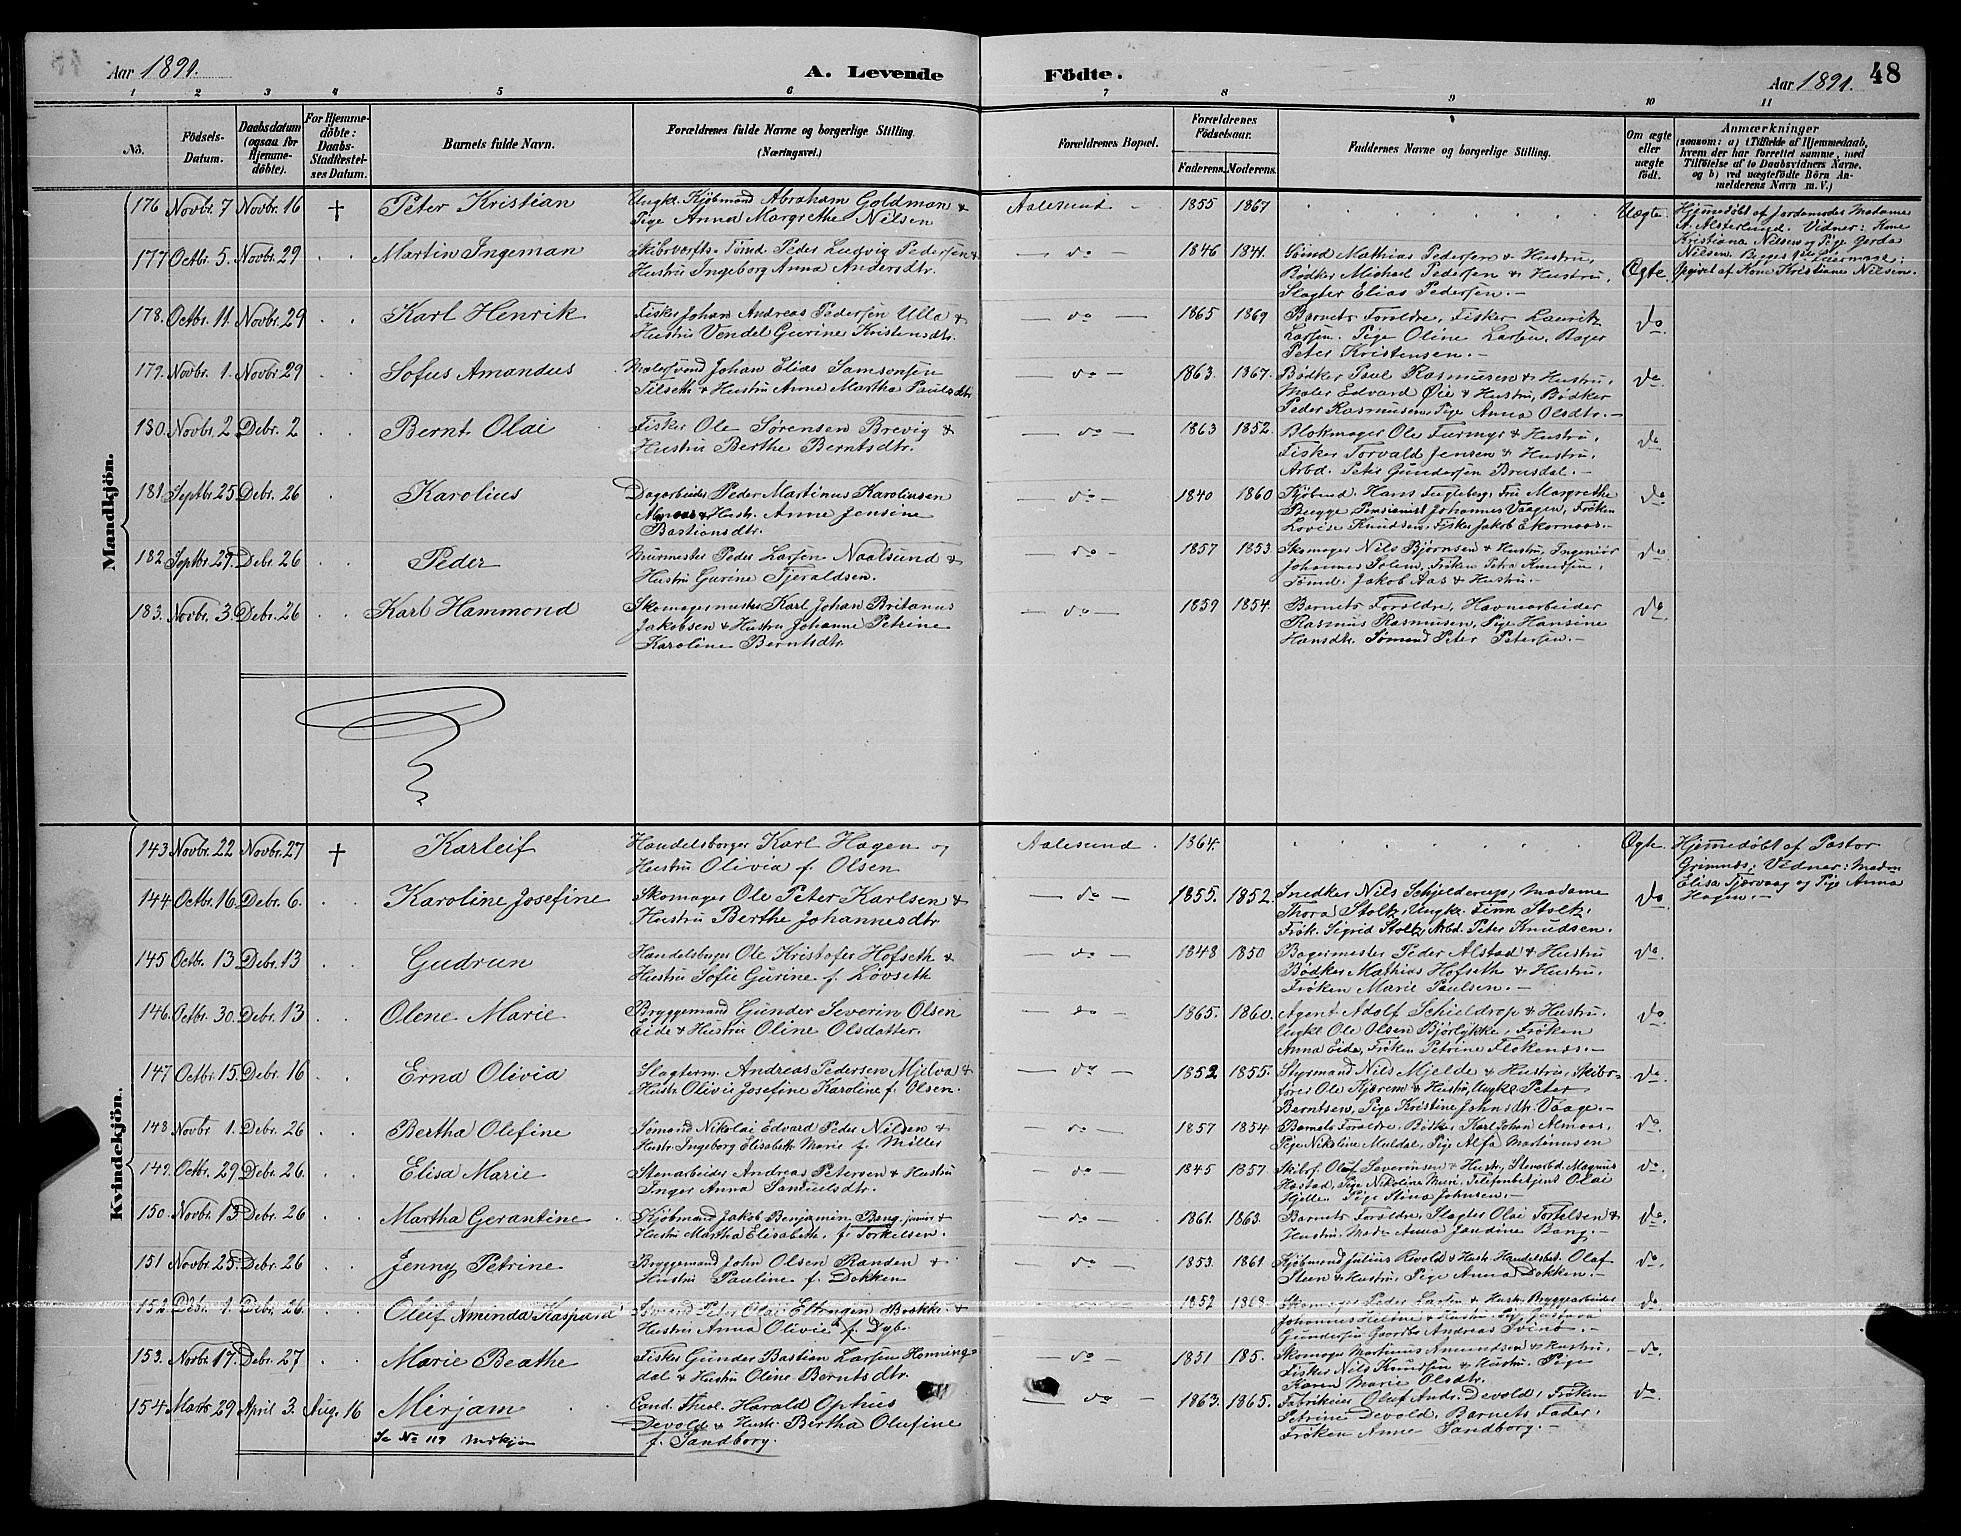 Aar 1891.
A. Levende
Födte.
Aar 1891.
48
1 2 3 4 5 6 7 8 9 10 11
No.
Födsels-Datum.
Daabsdatum (ogsaa for Hjemme-döbte).
For Hjemme-döbte: Daabs-Stadfæstelses Datum.
Barnets fulde Navn.
Forældrenes fulde Navne og borgerlige Stilling. (Næringsvei.)
Forældrenes Bopæl.
Forældrenes Födselsaar.
Faderens. Moderens.
Faddernes Navne og borgerlige Stilling.
Om ægte eller uægte födt.
Anmærkninger
(saasom: a) i Tilfælde af Hjemmedaab, hvem der har forrettet samme, med Tilföielse af to Daabsvidners Navne, og b) ved uægtefödte Börn Anmelderens Navn m. V.)
Mandkjön.
176 Novbr. 7 Novbr. 16 † Peter Kristian
Ungk. Kjöbmand Abraham Goldman &
Pige Anna Margrethe Nilsen
Aalesund - 1855 1867 Uægte.
Hjemmedöbt af Jordemoder Madame
A. Alsterlund. Vidner: Kone
Kristiana Nilsen og Pige Gerda
Nielsen. Begges
Opgivet af Kone Kristiane Nilsen.
177 Octbr. 5. Novbr. 29 Martin Ingeman
Skibsværfts-Tömd. Peder Ludvig Pedersen &
Hustru Ingeborg Anna Andersdtr.
do 1846 1841. Sömd Mathias Pedersen & Hustru,
Bödker Michael Pedersen & Hustru,
Slagter Elias Pedersen. Ægte.
178. Octbr. 11. Novbr. 29 Karl Henrik
Fisker Johan Andreas Pedersen Ulla &
Hustru Vendel Gurine Kristensdtr.
do 1865 1869 Barnets Foreldre, Fisker Lauritz
Larsen. Pige Oline Larsen, Bager
Peter Kristensen. do
179. Novbr. 1. Novbr. 29 Sofus Amandus
Malersvend Johan Elias Samsonsen
Tilseth & Hustru Anne Martha Paulsdtr
do 1863. 1867. Bödker Paul Rasmusen & Hustru,
Maler Edvard Øie & Hustru, Bödker
Peder Rasmusen, Pige Anna Olsdtr. do
180. Novbr. 2. Debr. 2 Bernt Olai
Fisker Ole Sørensen Brevig &
Hustru Berthe Berntsdtr.
do 1863 1852. Blokmager Ole Furmyr & Hustru,
Fisker Torvald Jensen & Hustru,
Arbd. Peter Gundersen Brusdal. do
181. Septbr. 25. Debr. 26 Karolius
Dagarbeider Peder Martinus Karoliusen
& Hustr. Anne Jensine
Bastiansdtr.
do 1840 1860 Kjöbmd. Hans Fugleberg, Fru Margrethe
Bugge Pensionist Johannes Vaagen, Fröken
Lovise Knudsen, Fisker Jakob Ekornaas. do
182. Septbr. 27. Debr. 26 Peder
Murmester Peder Larsen Naalsund &
Hustru Gurine Fjeraldsen.
do 1857 1853. Skomager Nils Bjørnsen & Hustru, Ingeniör
Johannes Solem, Fröken Petra Knudsen,
Tömd. Jakob Aas & Hustru. do
183. Novbr. 3. Debr. 26 Karl Hammond
Skomagermester Karl Johan Britanus
Jakobsen & Hustru Johanne Petrine
Karoline Berntsdtr.
do 1859 1854. Barnets Foreldre, Havnearbeider
Rasmus Rasmusen, Pige Hansine
Hansdtr. Sömand Peter Petersen. do
Kvindekjön.
143. Novbr. 22 Novbr. 27 † Karleif
Handelsborger Karl Hagen og
Hustru Olivia f. Olsen
Aalesund. 1864. Ægte.
Hjemmedöbt af Pastor
Grimnes. Vidner: Madm
Elisa Fjørvaag og Pige Anna
Hagen.
144. Octbr. 16. Debr. 6. Karoline Josefine
Skomager Ole Peter Karlsen &
Hustru Berthe Johannesdtr
do 1855. 1852. Snedker Nils Schjelderup, Madame
Thora Stoltz, Ungk. Finn Stoltz,
Frök. Sigrid Stoltz, Arbd. Peter Knudsen. do
145 Octbr. 13. Debr. 13 Gudrun
Handelsborger Ole Kristofer Hofseth &
Hustru Sofie Gurine f. Lövseth
do 1848 1850 Bagermester Peder Alstad & Hustru
Bödker Mathias Hofseth & Hustru.
Fröken Marie Paulsen. do
146. Octbr. 30. Debr. 13 Olene Marie
Bryggemand Gunder Severin Olsen
Eide & Hustru Oline Olsdatter.
do 1865. 1860. Agent Adolf Schieldrop & Hustru.
Ungkl Ole Olsen Björlykke, Fröken
Anna Eide, Fröken Petrine Flokenes. do
147 Octbr. 15. Debr. 16 Erna Olivia
Slagterm. Andreas Pedersen Mjelva &
Hustr Olivie Josefine Karoline f. Olsen.
do 1852 1855. Styrmand Nils Mjelde & Hustru, Skibs-
förer Ole Kjærem & Hustru, Ungkl. Peter
Berntsen, Pige Kristine Johnsdtr. Vaage. do
148 Novbr 1. Debr. 26 Bertha Olefine
Sömand Nikolai Edvard Peder Nilsen &
Hustr. Ingeborg Elisabeth Marie f. Möller
do 1857 1854 Barnets Foreldre, Bödker Karl Johan Almaas,
Pige Nikoline Muldal, Pige Alfa Martinusen do
149. Octbr. 29 Debr. 26. Elisa Marie
Stenarbeider Andreas Petersen & Hustru
Inger Anna Samuelsdtr.
do 1845 1857 Skibsf. Oluf Severinsen & Hustr., Stenarbd. Magnus
Hastad, Pige Nikoline Muri. Telefonbetjent Olai
Hjelle. Pige Stina Johnsen. do
150. Novbr. 13. Debr. 26 Martha Gerantine
Kjöbmand Jakob Benjamin Bang, junior &
Hustru Martha Elisabeth. f. Torkilsen.
do 1861. 1863. Barnets Foreldre, Slagter Olai Torkelsen &
Hustru. Madm. Anna Jandine Bang. do
151 Novbr. 25. Debr. 26 Jenny Petrine
Bryggemand John Olsen Randen &
Hustru Pauline f. Dokken
do 1853. 1861 Kjöbmand Julius Revold & Hustr. Handelsbet. Olaf
Steen & Hustru, Pige Anna Dokken. do
152. Debr. 1. Debr. 26. Oleif Aminda Kaspara
Sömand Peter Olai Ellingsen Bakke &
Hustru Anna Olivie f. Dyb.
do 1852 1868. Skomager Peder Larsen & Hustr. Bryggearbeider
Johannes Helene & Hustru.
Gundersen Gaardbr Andreas Svinö. do
153. Novbr. 17. Debr. 27 Marie Beathe
Fisker Gunder Bastian Larsen Honning-
dal & Hustru Oline Berntsdtr.
do 1851 185. Skomager Martinus Amundsen & Hustru,
Fisker Nils Knudsen & Hustru. Pige
Karen Marie Olsdtr. do
154 Marts 29 April 3. Aug. 16 Mirjam
Se No 119 Mdkjøn
Cand. Theol. Harald Ophus
Devold & Hustr. Bertha Olufine
f. Sandborg.
do 1863. 1865. Fabrikeier Oluf Andr. Devold, Fröken
Petrine Devold, Barnets Fader,
Fröken Anne Sandborg. do